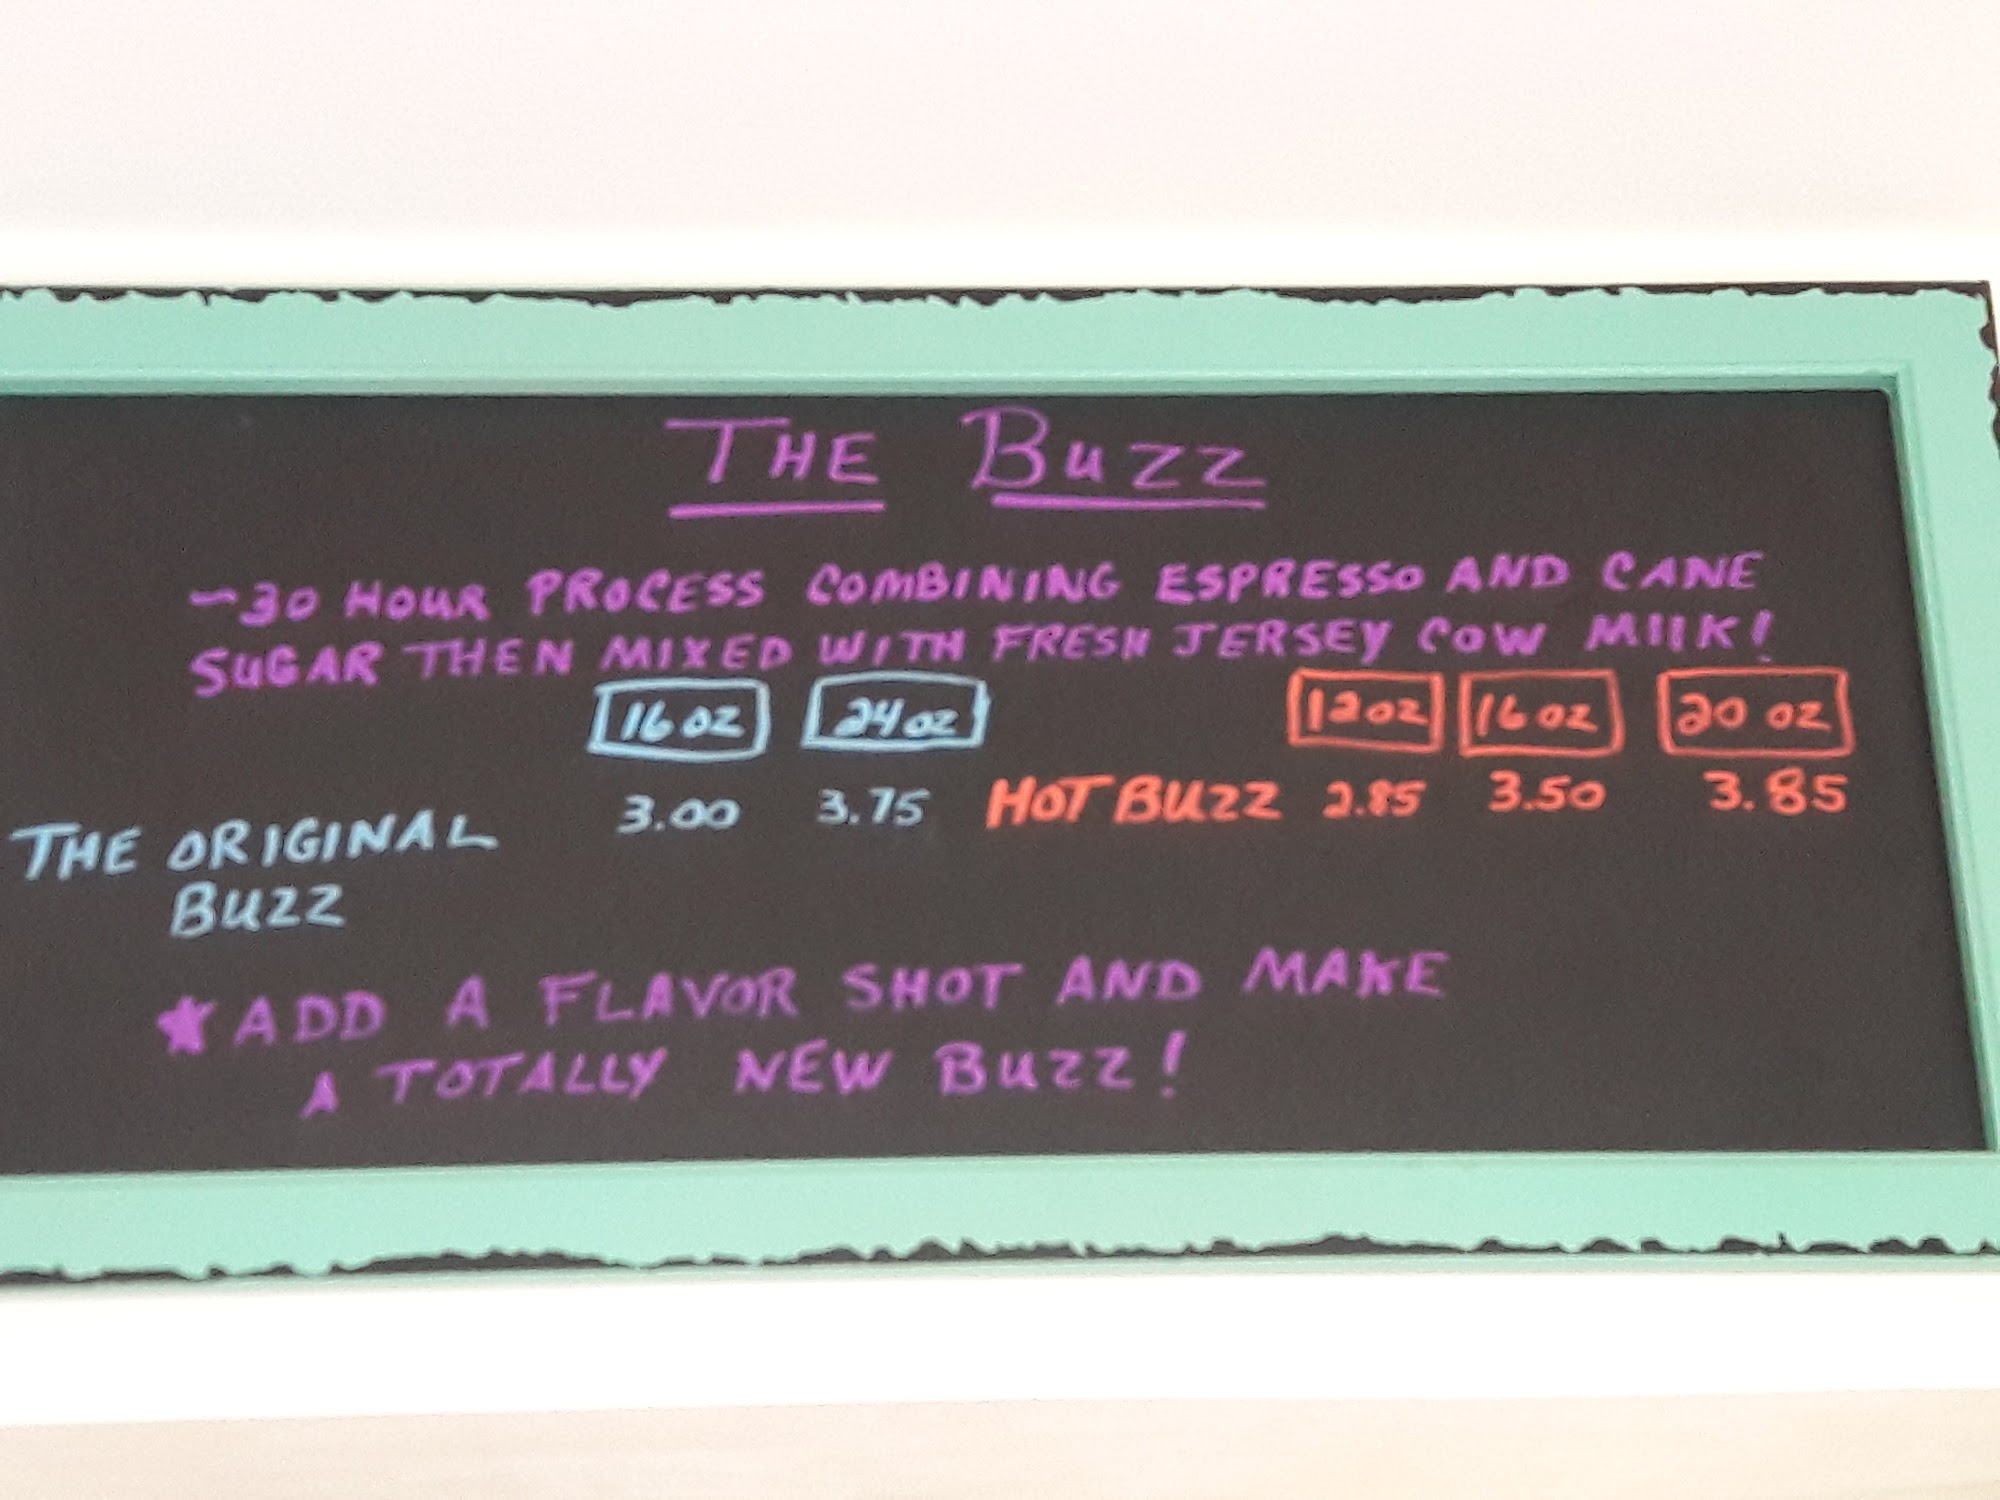 THE BUZZ
~30 HOUR PROCESS COMBINING ESPRESSO AND CANE
SUGAR THEN MIXED WITH FRESH JERSEY COW MILK!
16 oz 24 oz 12 oz 16 oz 20 oz
3.00 3.75 HOT BUZZ 2.85 3.50 3.85
THE ORIGINAL
BUZZ
★ADD A FLAVOR SHOT AND MAKE
A TOTALLY NEW BUZZ!